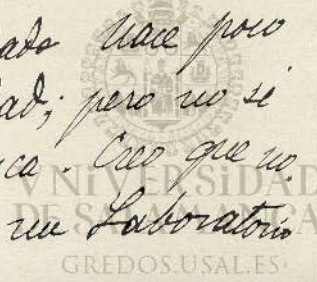 ado hace poco
dad; pero no sé
ca. Creo que no.
un Laboratorio
VNiVERSiDAD
DE SALAMANCA
GREDOS.USAL.ES